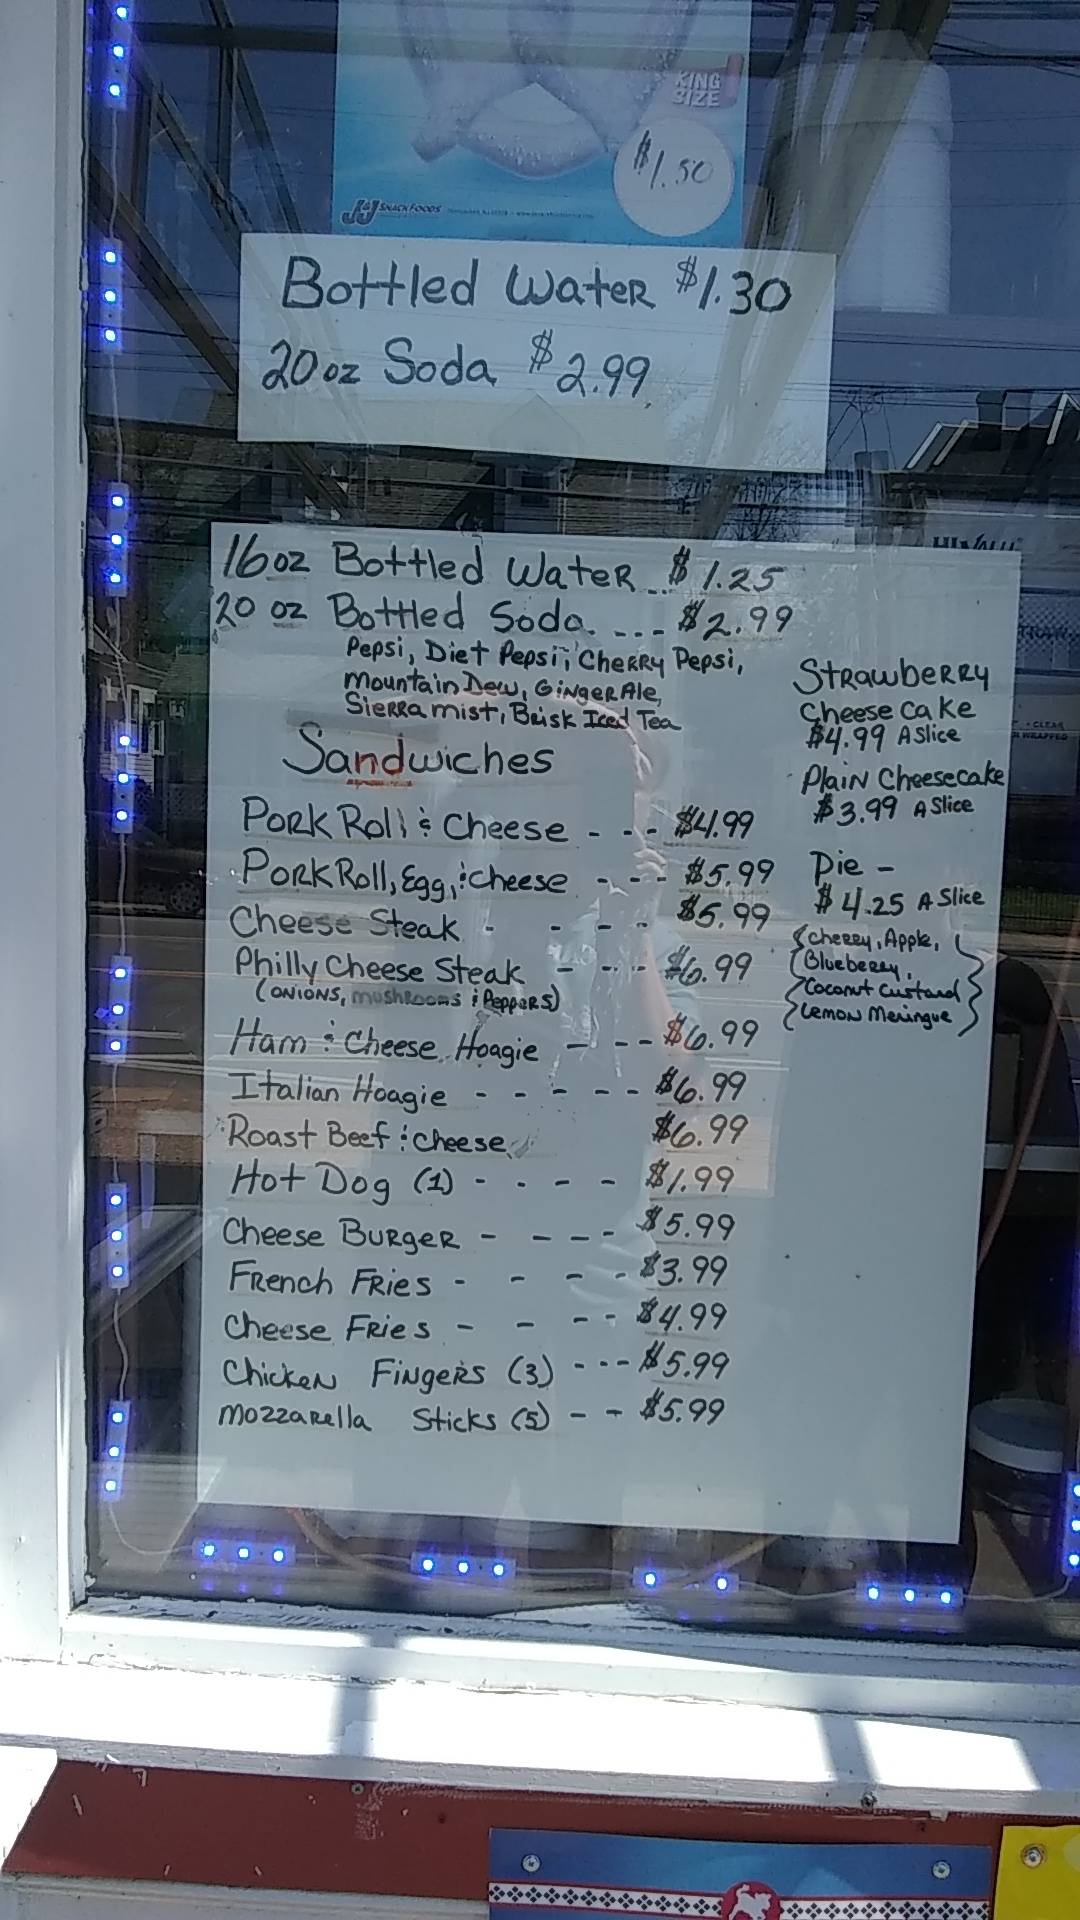 KING
SIZE
$1.50
J&J SNACK FOODS
Bottled Water $1.30
20 oz Soda $2.99
16 oz Bottled Water $1.25
20 oz Bottled Soda ... $2.99
Pepsi, Diet Pepsi, Cherry Pepsi,
Mountain Dew, Ginger Ale,
Sierra mist, Brisk Iced Tea
Sandwiches
Pork Roll & Cheese - - - $4.99
Pork Roll, Egg, & cheese - - - $5.99
Cheese Steak - - - - $5.99
Philly Cheese Steak - - - $6.99
(ONIONS, mushrooms & Peppers)
Ham & Cheese Hoagie - - - $6.99
Italian Hoagie - - - - - $6.99
Roast Beef & cheese $6.99
Hot Dog (1) - - - - $1.99
Cheese Burger - - - - $5.99
French Fries - - - - $3.99
Cheese Fries - - - - $4.99
Chicken Fingers (3) - - - $5.99
Mozzarella Sticks (5) - - $5.99
Strawberry
Cheese Cake
$4.99 A Slice
Plain Cheesecake
$3.99 A Slice
Pie -
$4.25 A Slice
{Cherry, Apple,
Blueberry,
Coconut Custard
Lemon Meringue}